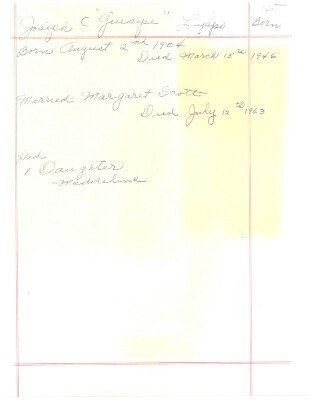 Joseph C "Guisype" Lippo Born
Born August 2nd 1904
Died March 15th 1946
Married Margaret Scott
Died July 12th 1963
Had
1 Daughter
Maddaline